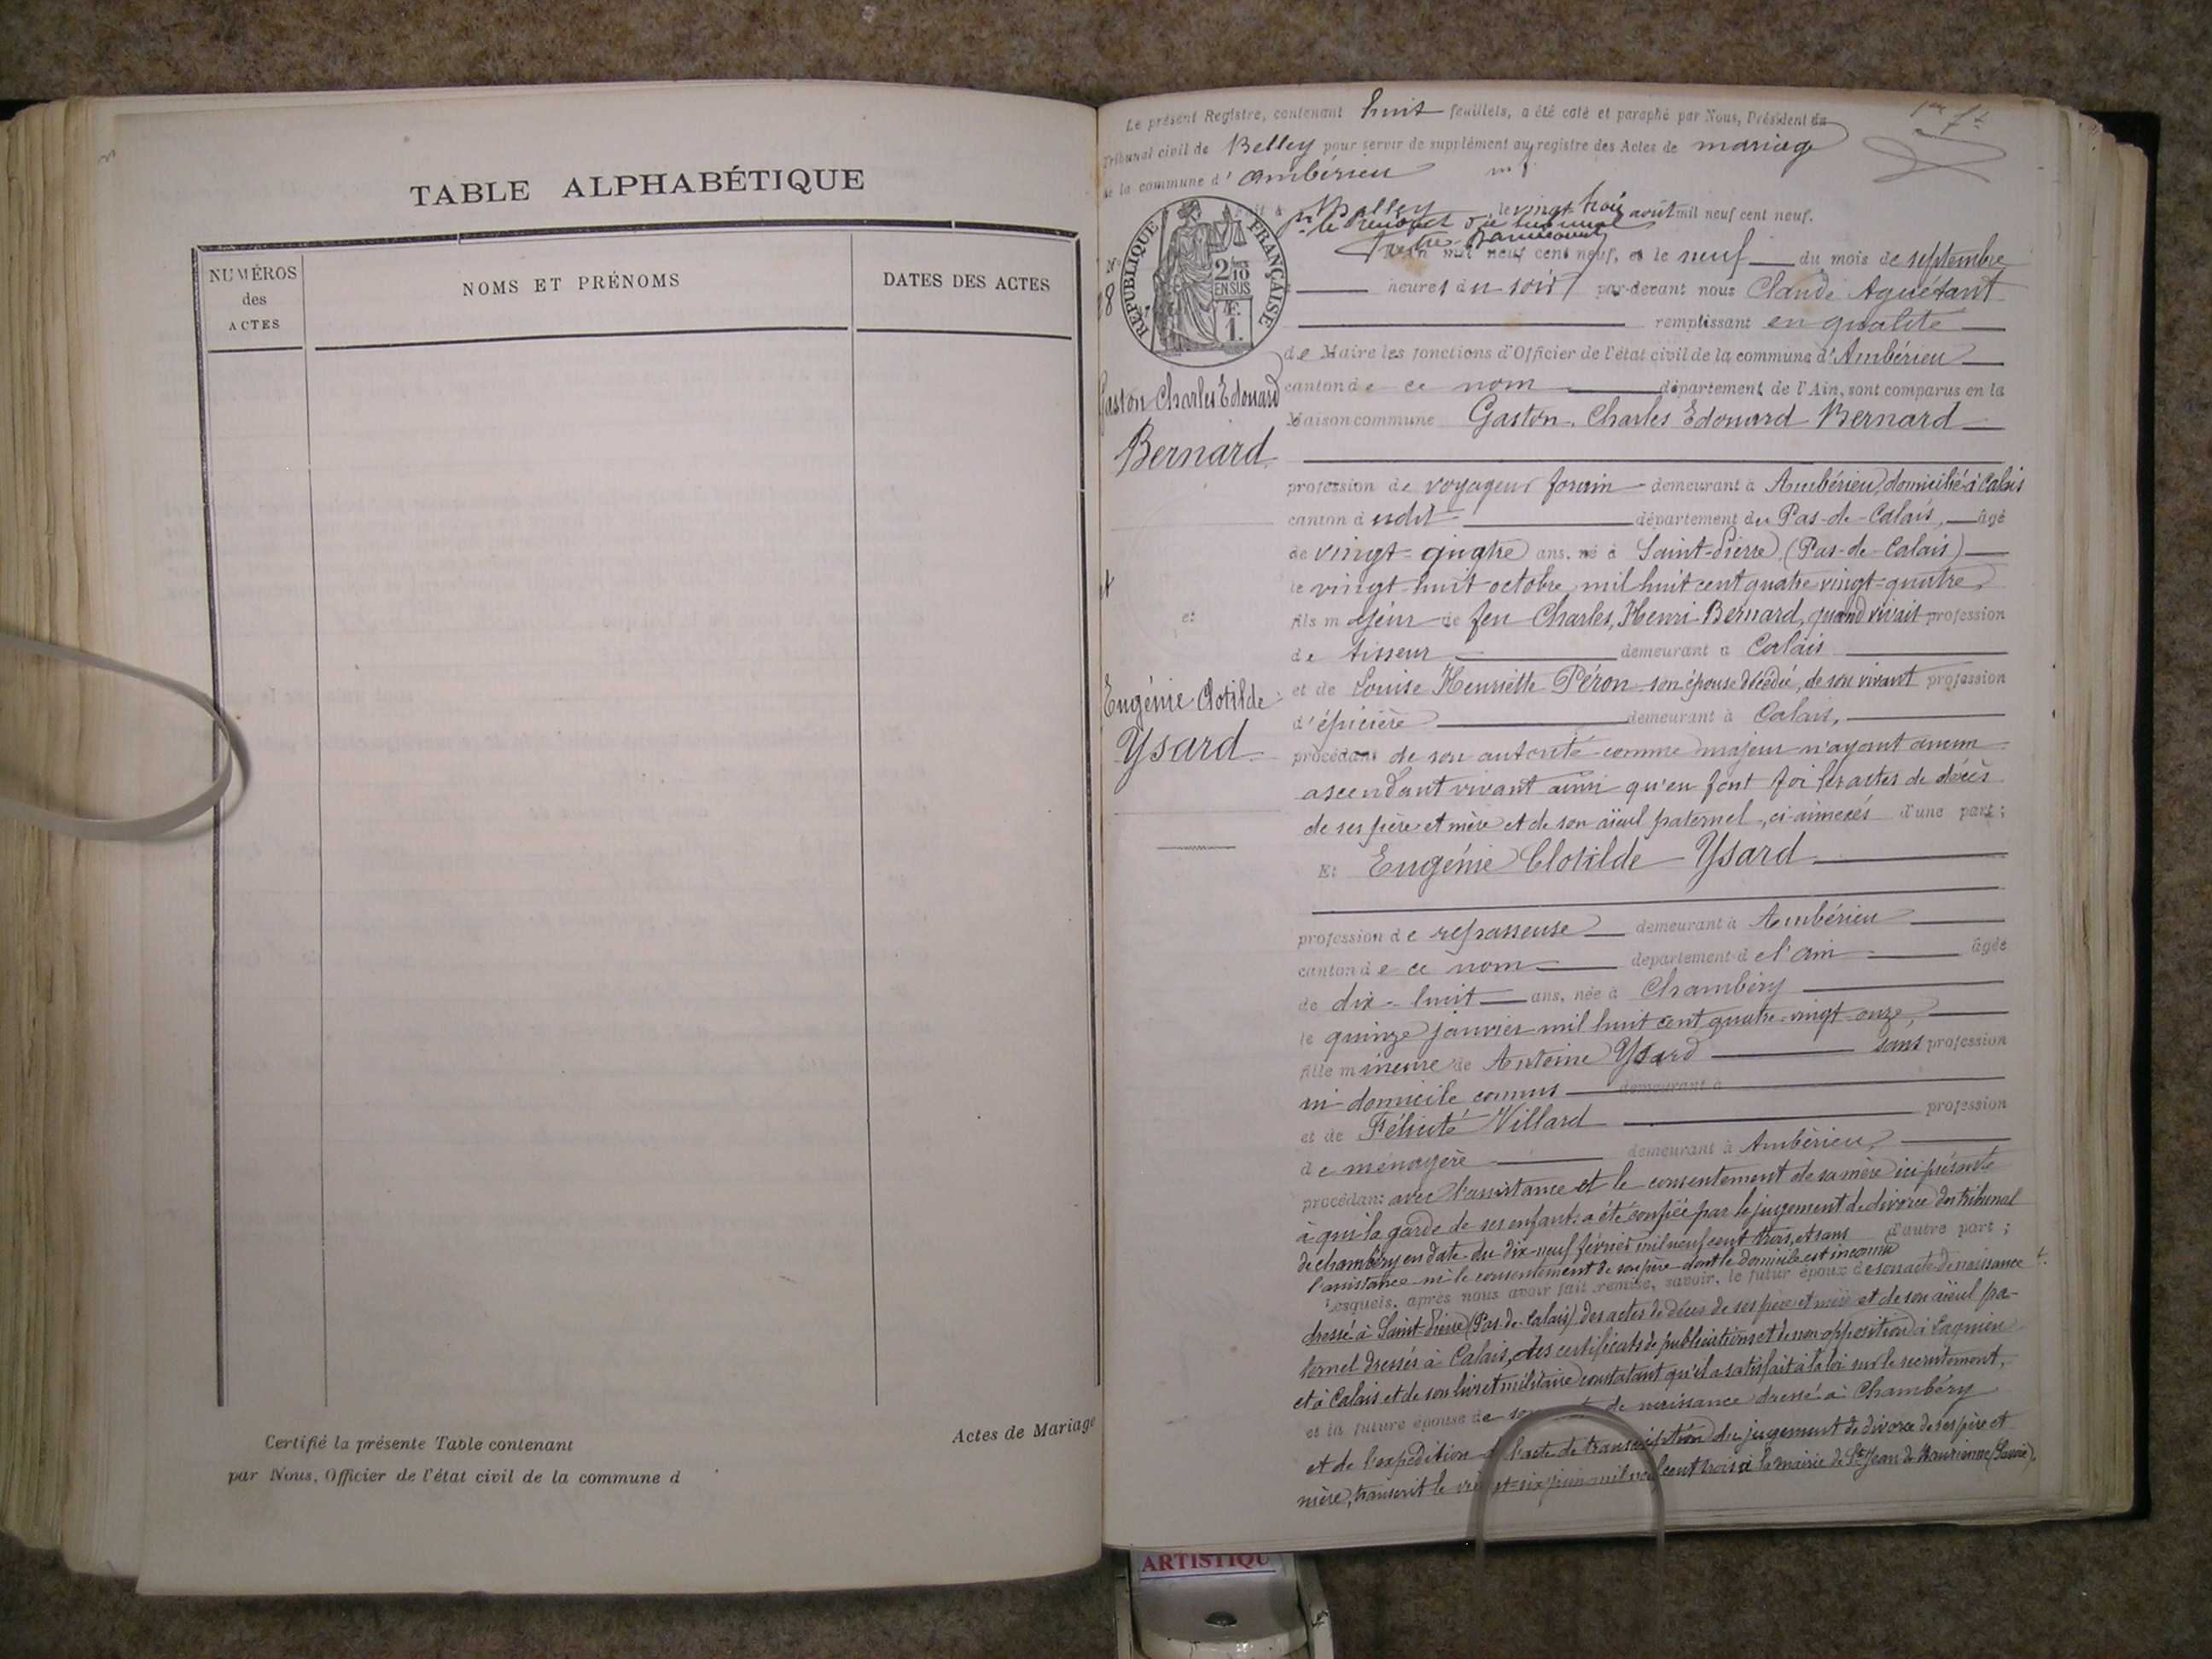 TABLE ALPHABÉTIQUE
NUMÉROS
des
ACTES
NOMS ET PRÉNOMS
DATES DES ACTES
Certifié la présente Table contenant
Actes de Mariage
par Nous, Officier de l'état civil de la commune d
Le présent Registre, contenant huit feuillets, a été coté et paraphé par Nous, Président du
Tribunal civil de Belley pour servir de supplément au registre des Actes de mariage
de la commune d'Ambérieu
Fait à Belley le vingt trois août mil neuf cent neuf.
RÉPUBLIQUE FRANÇAISE
2/10
EN SUS
1F.
N°
18
L'an mil neuf cent neuf, et le neuf du mois de septembre
heures du soir par-devant nous Claude Aguétant
remplissant en qualité
de Maire les fonctions d'Officier de l'état civil de la commune d'Ambérieu
canton de ce nom département de l'Ain, sont comparus en la
Maison commune Gaston, Charles Edouard Bernard
Gaston Charles Edouard
Bernard
profession de voyageur forain demeurant à Ambérieu, domicilié à Calais
canton dudit département du Pas-de-Calais, âgé
de vingt-quatre ans, né à Saint-Pierre (Pas-de-Calais)
le vingt-huit octobre mil huit cent quatre vingt-quatre
fils majeur de feu Charles, Henri Bernard, quand vivait profession
de tisseur demeurant à Calais
et
et de Louise Henriette Péron son épouse décédée, de son vivant profession
d'épicière demeurant à Calais,
Eugénie Clotilde
Ysard
procédant de son autorité comme majeur n'ayant aucun
ascendant vivant ainsi qu'en font foi les actes de décès
de ses père et mère et de son aïeul paternel, ci-annexés d'une part;
Et Eugénie Clotilde Ysard
profession de repasseuse demeurant à Ambérieu
canton de ce nom département de l'Ain âgée
de dix-huit ans, née à Chambéry
le quinze janvier mil huit cent quatre-vingt-onze,
fille mineure de Antoine Ysard sans profession
ni domicile connus demeurant à
et de Félicité Villard profession
de ménagère demeurant à Ambérieu,
procédant avec l'assistance et le consentement de sa mère ici présente
à qui la garde de ses enfants a été confiée par le jugement de divorce du tribunal
de Chambéry en date du dix-neuf février mil neuf cent trois, et sans d'autre part;
l'assistance ni le consentement de son père dont le domicile est inconnu
Lesquels, après nous avoir fait remise, savoir, le futur époux de son acte de naissance
dressé à Saint-Pierre (Pas-de-Calais) des actes de décès de ses père et mère et de son aïeul pa-
ternel dressés à Calais, des certificats de publications et de non opposition à Lagnieu
et à Calais et de son livret militaire constatant qu'il a satisfait à la loi sur le recrutement,
et la future épouse de son acte de naissance dressé à Chambéry
et de l'expédition de l'acte de transcription du jugement de divorce de ses père et
mère, transcrit le vingt-six juin mil neuf cent trois à la mairie de St Jean de Maurienne (Savoie),
ARTISTIQU